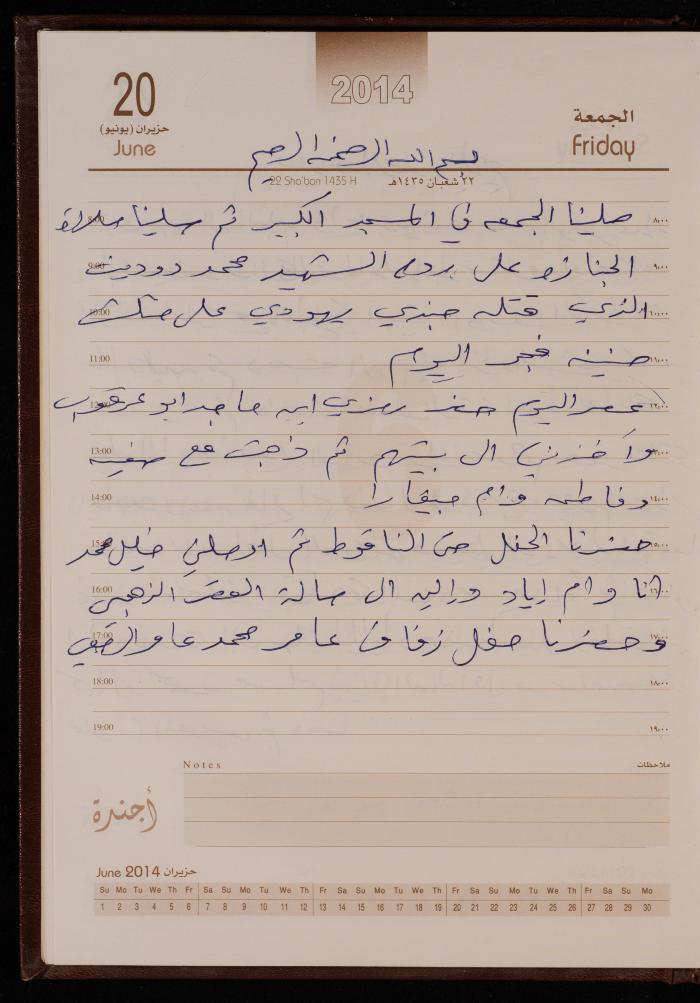 2014
20
حزيران (يونيو)
June
الجمعة
Friday
بسم الله الرحمن الرحيم
22 Sha'ban 1435 H ٢٢ شعبان ١٤٣٥هـ
8:00 صلينا الجمعه في المسجد الكبير ثم صلينا صلاة ٨:٠٠
9:00 الجنازه على روح الشهيد محمد دودين ٩:٠٠
10:00 الذي قتله جندي يهودي على ١٠:٠٠
11:00 فجر اليوم ١١:٠٠
12:00 عصر اليوم حضر رمزي ابن ماجد ابو عرقوب ١٢:٠٠
13:00 واخذني الى بيتهم ثم ذهبت مع صفيه ١٣:٠٠
14:00 وفاطمه وام ١٤:٠٠
15:00 حضرنا الحفل حتى الناقوط ثم اوصلني خليل محمد ١٥:٠٠
16:00 انا وام اياد الى صالة القصر الذهبي ١٦:٠٠
17:00 وحضرنا حفل زفاف عامر محمد عامر ١٧:٠٠
18:00 ١٨:٠٠
19:00 ١٩:٠٠
Notes ملاحظات
أجندة
June 2014 حزيران
Su Mo Tu We Th Fr Sa Su Mo Tu We Th Fr Sa Su Mo Tu We Th Fr Sa Su Mo Tu We Th Fr Sa Su Mo
1 2 3 4 5 6 7 8 9 10 11 12 13 14 15 16 17 18 19 20 21 22 23 24 25 26 27 28 29 30